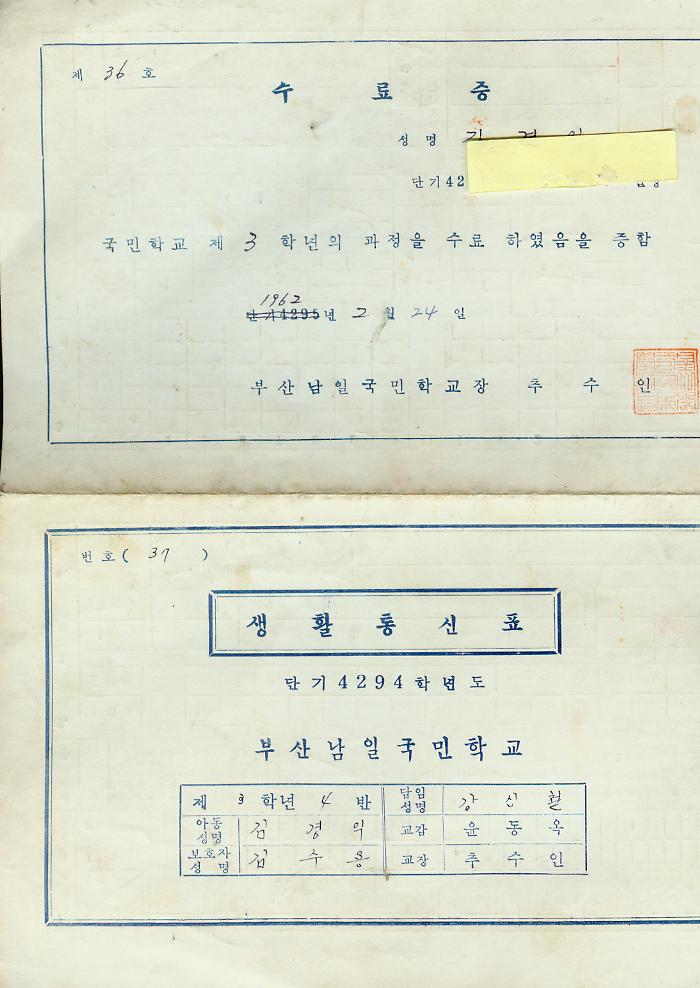 제 36 호
수 료 증
성 명 김 경 익
단기42
국민학교 제 3 학년의 과정을 수료 하였음을 증함
1962
단기4295년 2 월 24 일
부산남일국민학교장 추 수 인
번호( 37 )
생 활 통 신 표
단기4294학년도
부산남일국민학교
제 3 학년 4 반 담임성명 강 신 철
아동성명 김 경 익 교감 윤 동 옥
보호자성명 김 수 용 교장 추 수 인